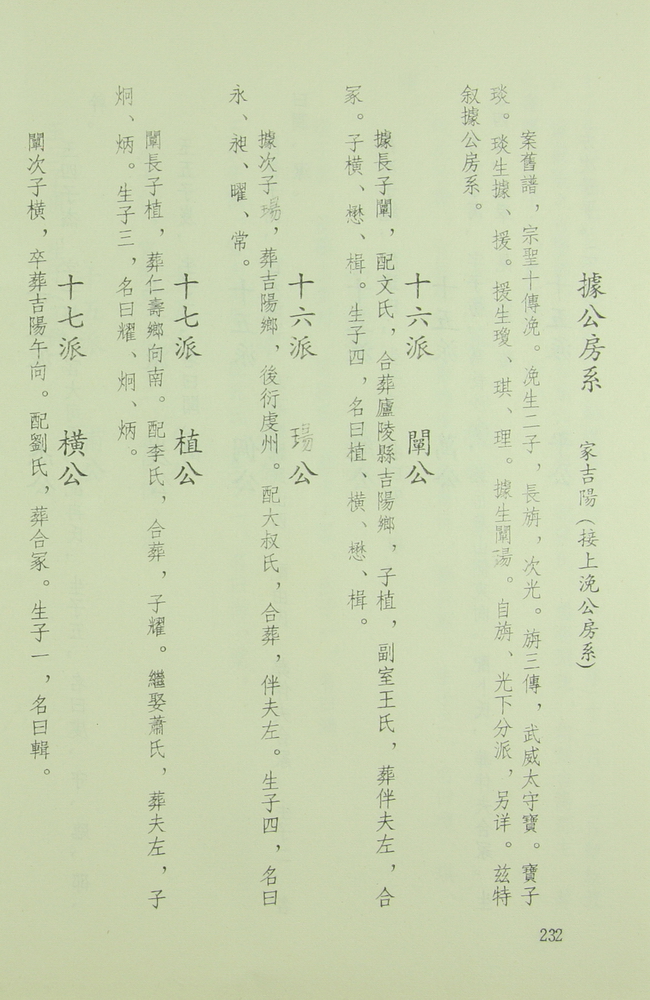 據公房系　家吉陽(接上浼公房系)
案舊譜，宗聖十傳浼。浼生二子，長旃，次光。旃三傳，武威太守寶。寶子
琰。琰生據、援。援生瓊、琪、理。據生闡瑒。自旃、光下分派，另详。兹特
叙據公房系。
十六派　闡公
據長子闡，配文氏，合葬廬陵縣吉陽鄉，子植，副室王氏，葬伴夫左，合
冢。子橫、懋、楫。生子四，名曰植、橫、懋、楫。
十六派　瑒公
據次子瑒，葬吉陽鄉，後衍虔州。配大叔氏，合葬，伴夫左。生子四，名曰
永、昶、曜、常。
十七派　植公
闡長子植，葬仁壽鄉向南。配李氏，合葬，子耀。繼娶蕭氏，葬夫左，子
炯、炳。生子三，名曰耀、炯、炳。
十七派　橫公
闡次子橫，卒葬吉陽午向。配劉氏，葬合冢。生子一，名曰輯。
232